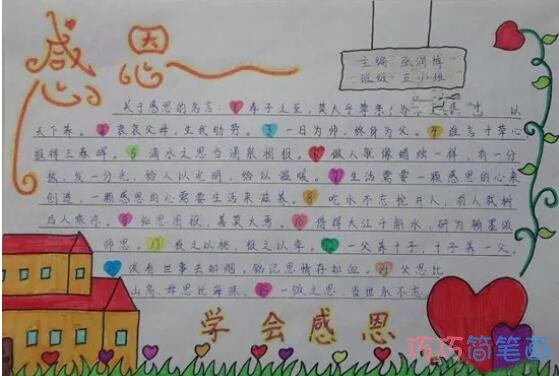 感恩
主编:张润梓
班级:五小班
关于感恩的名言: 1 孝子之至,莫大乎尊亲; 以
天下养。2 哀哀父母,生我劬劳。3 一日为师,终身为父。4 谁言寸草心
报得三春晖。5 滴水之恩当涌泉相报。6 做人就像蜡烛一样,有一分
热,发一分光,给人以光明,给以温暖。7 生活需要一颗感恩的心来
创造,一颗感恩的心需要生活来滋养。8 吃水不忘挖井人,前人栽树
后人乘凉。9 知恩图报,善莫大焉。10 借得大江千斛水,研为翰墨颂
师恩。11 投之以桃,报之以李。12 一父养十子,十子养一父。
淡看世事去如烟,铭记恩情存如血。14 父恩比
山高,母恩比海深。15 一饭之恩,当世永不忘。
学会感恩
巧巧简笔画